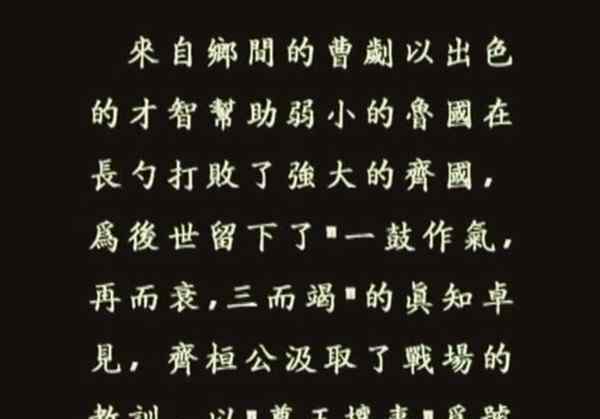 來自鄉間的曹劌以出色
的才智幫助弱小的魯國在
長勺打敗了強大的齊國,
爲後世留下了"一鼓作氣,
再而衰,三而竭"的眞知卓
見, 齊桓公汲取了戰場的
教訓, 以"尊王攘夷"爲號